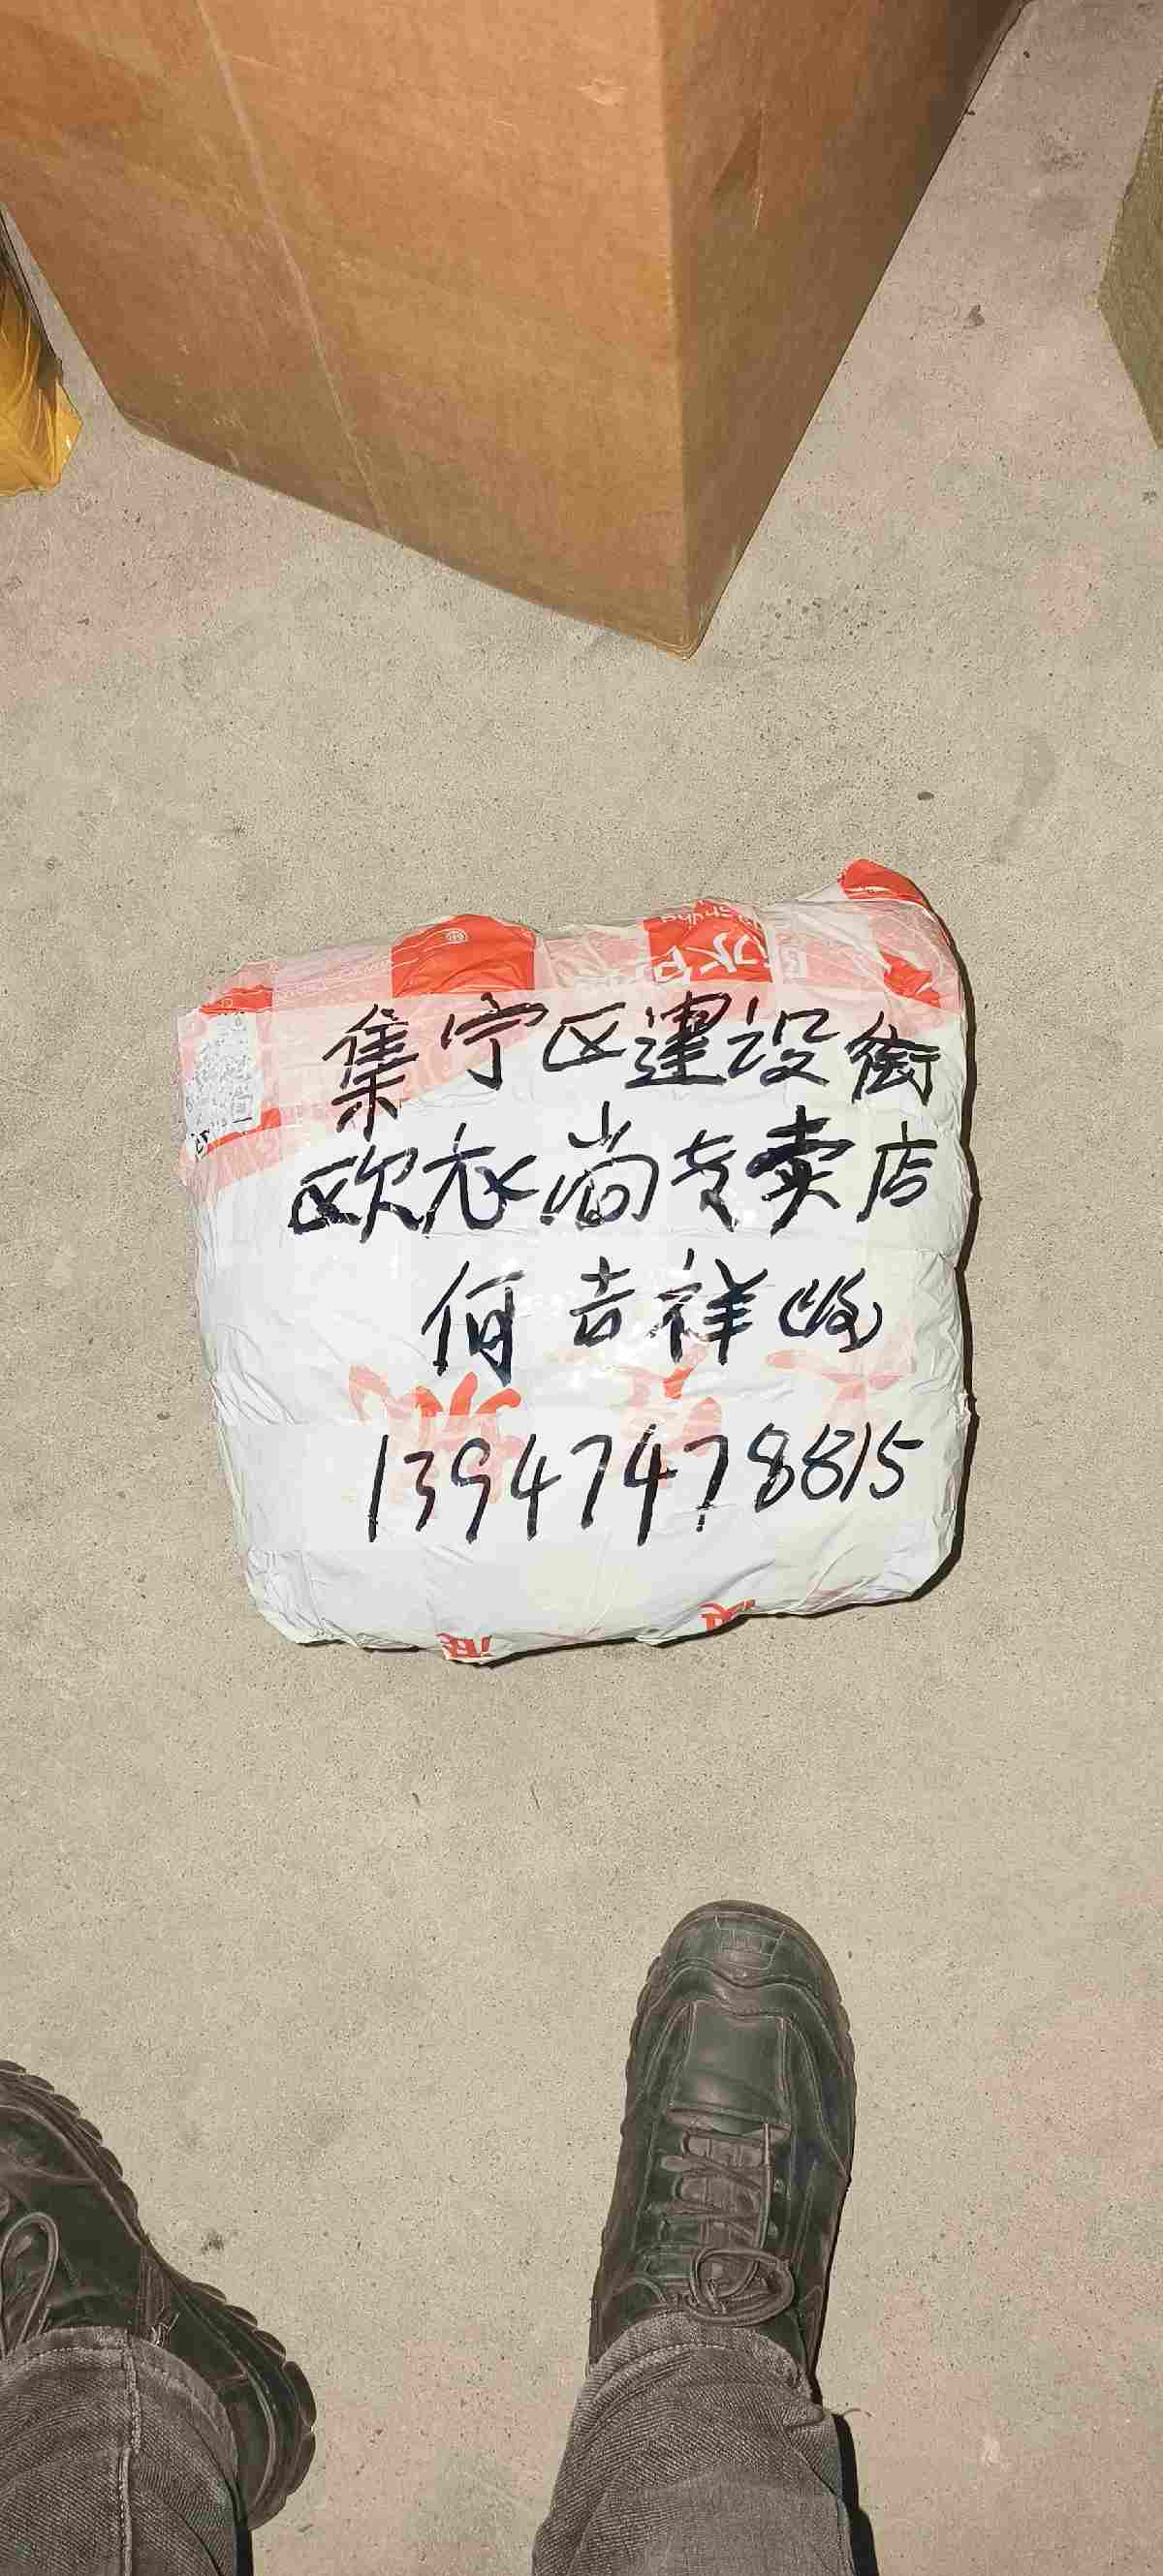 集宁区建设街
欧衣尚专卖店
何吉祥(收)
13947478815